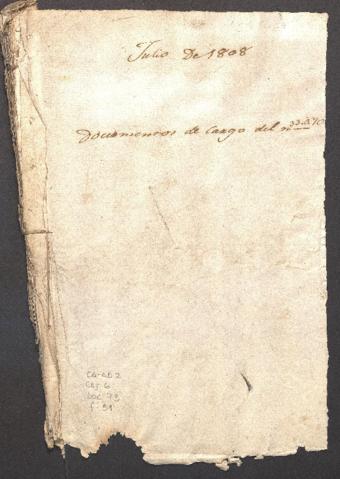 Julio De 1808
Documentos de Cargo del nº 33 a 70
CA-AD2
CAJ 6
DOC 79
f. 91